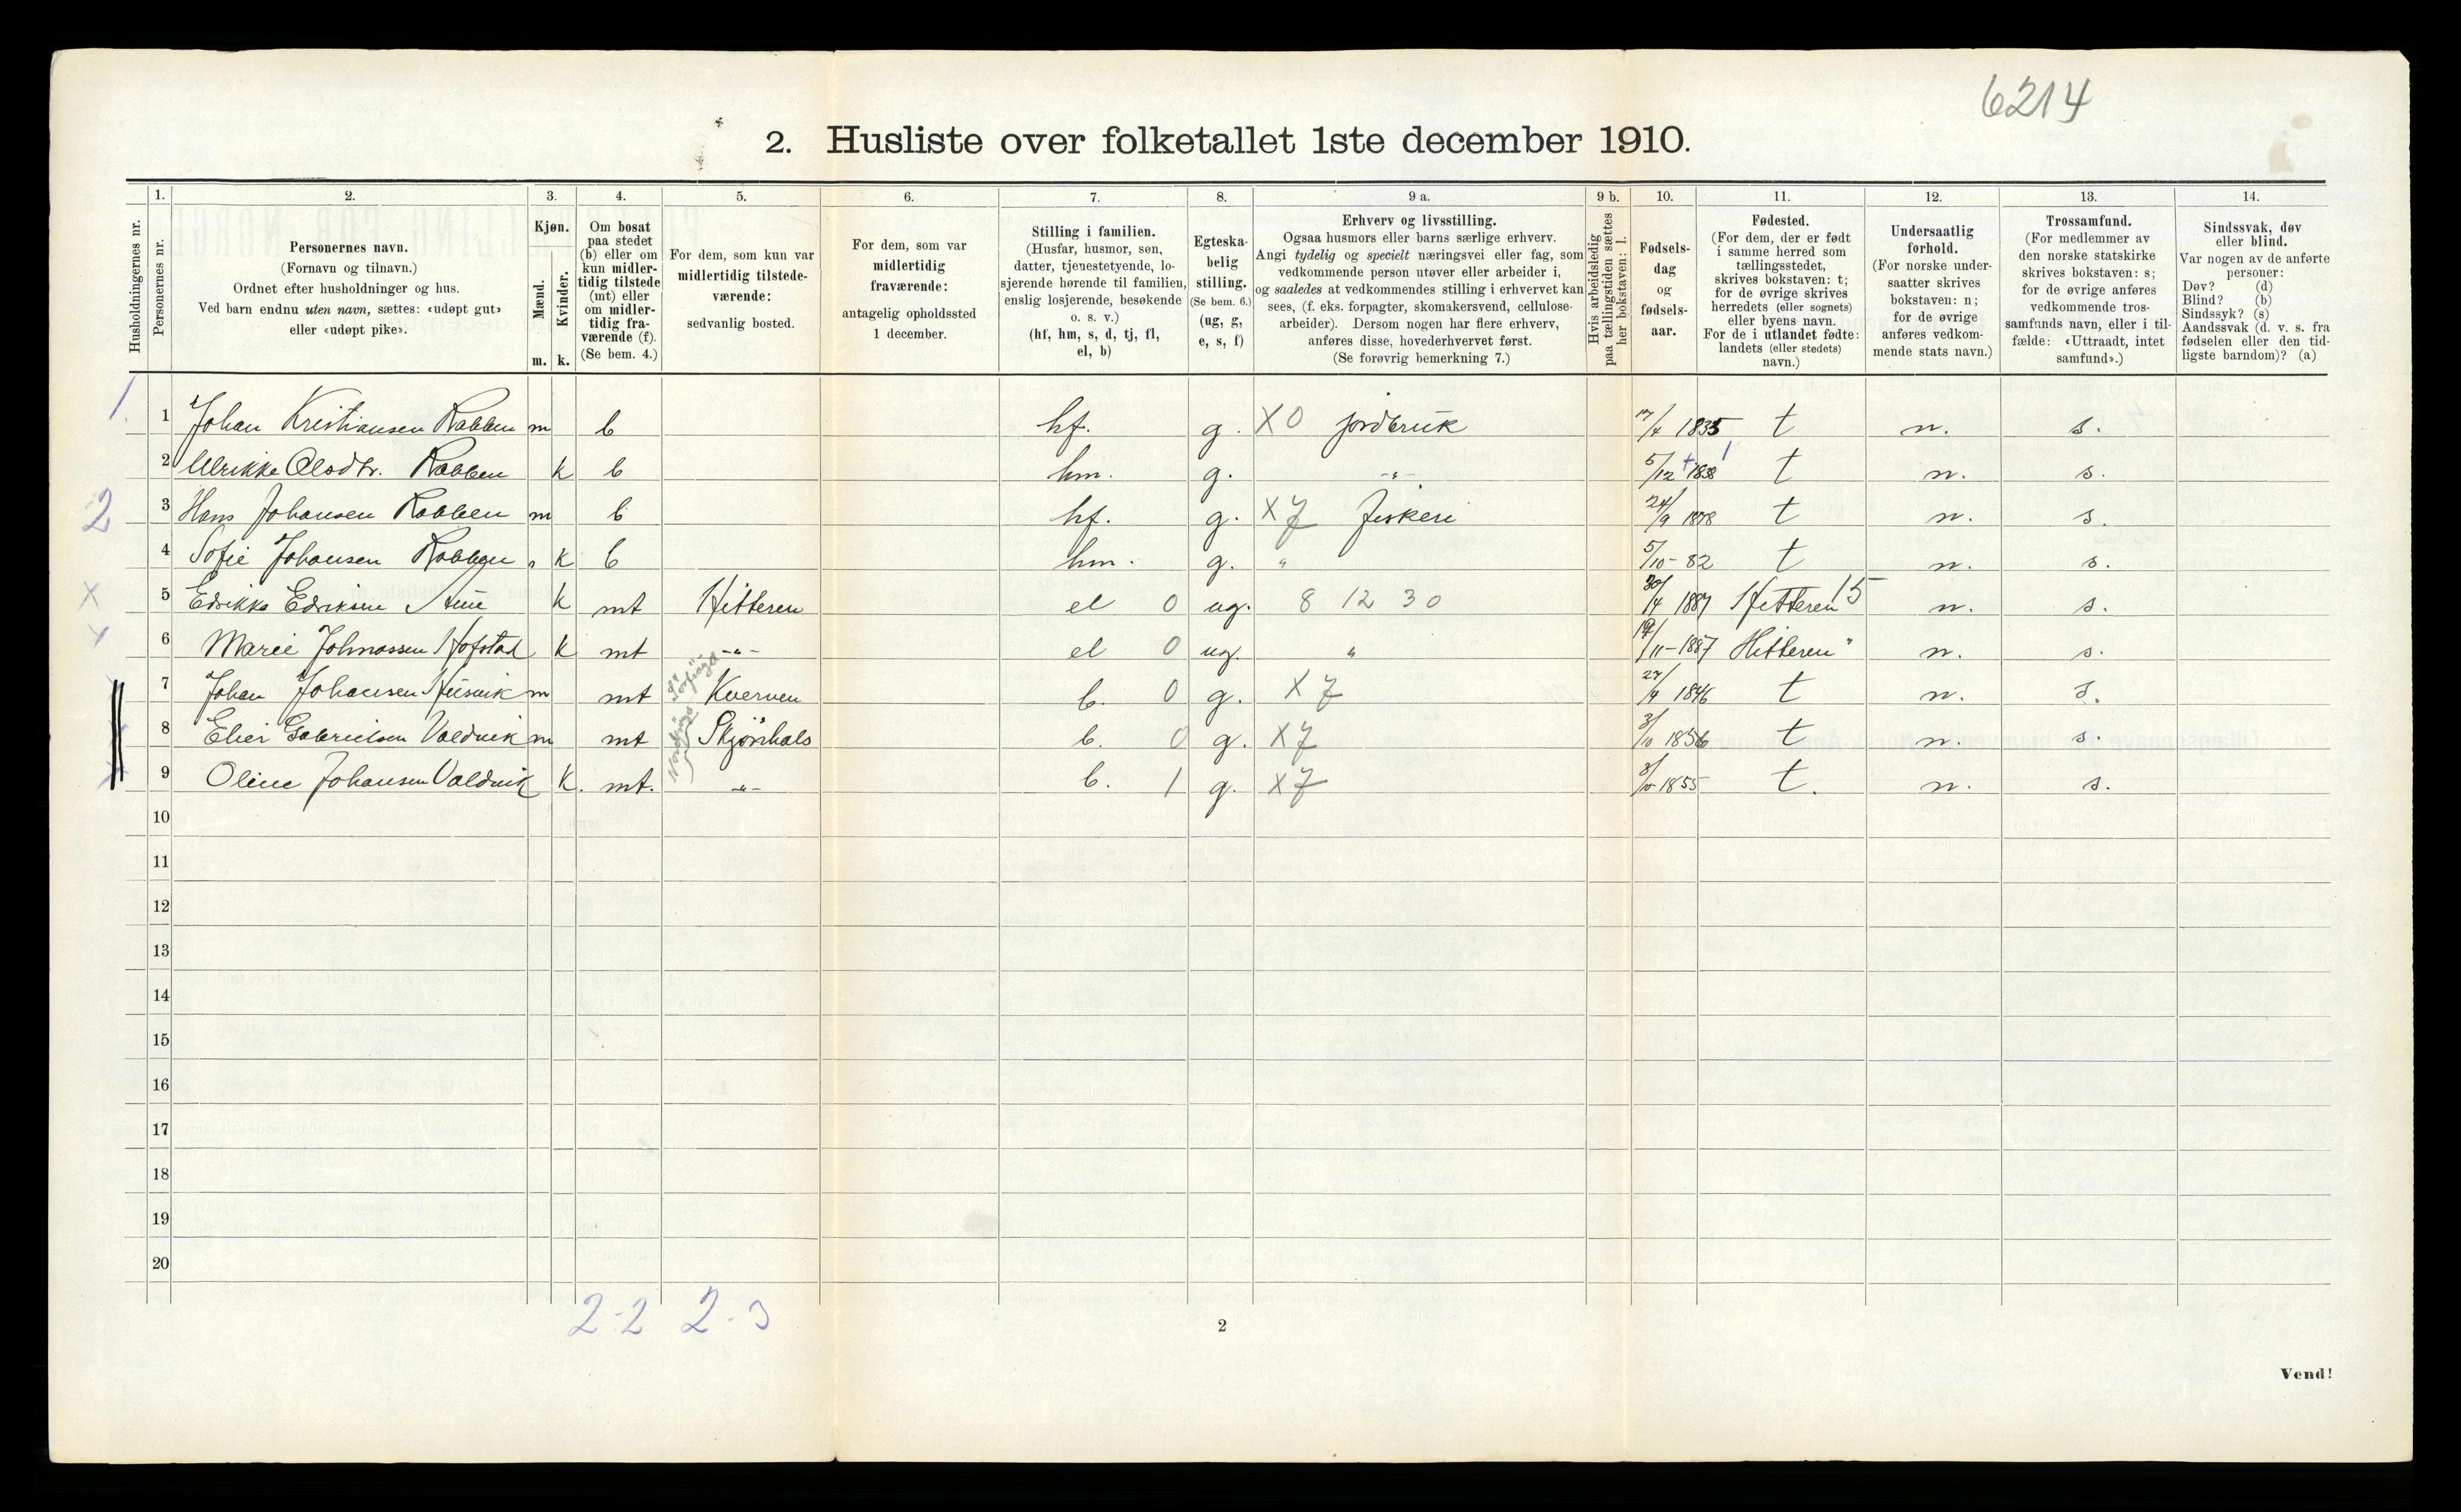 6214
2. Husliste over folketallet 1ste december 1910.
Husholdningernes nr.
1.
Personernes nr.
2.
Personernes navn.
(Fornavn og tilnavn.)
Ordnet efter husholdninger og hus.
Ved barn endnu uten navn, sættes: «udøpt gut»
eller «udøpt pike».
3.
Kjøn.
Mænd.
Kvinder.
m. k.
4.
Om bosat
paa stedet
(b) eller om
kun midler-
tidig tilstede
(mt) eller
om midler-
tidig fra-
værende (f).
(Se bem. 4.)
5.
For dem, som kun var
midlertidig tilstede-
værende:
sedvanlig bosted.
6.
For dem, som var
midlertidig
fraværende:
antagelig opholdssted
1 december.
7.
Stilling i familien.
(Husfar, husmor, søn,
datter, tjenestetyende, lo-
sjerende hørende til familien,
enslig losjerende, besøkende
o. s. v.)
(hf, hm, s, d, tj, fl,
el, b)
8.
Egteska-
belig
stilling.
(Se bem. 6.)
(ug, g,
e, s, f)
9 a.
Erhverv og livsstilling.
Ogsaa husmors eller barns særlige erhverv.
Angi tydelig og specielt næringsvei eller fag, som
vedkommende person utøver eller arbeider i,
og saaledes at vedkommendes stilling i erhvervet kan
sees, (f. eks. forpagter, skomakersvend, cellulose-
arbeider). Dersom nogen har flere erhverv,
anføres disse, hovederhvervet først.
(Se forøvrig bemerkning 7.)
9 b.
Hvis arbeidsledig
paa tællingstiden sættes
her bokstaven: l.
10.
Fødsels-
dag
og
fødsels-
aar.
11.
Fødested.
(For dem, der er født
i samme herred som
tællingsstedet,
skrives bokstaven: t;
for de øvrige skrives
herredets (eller sognets)
eller byens navn.
For de i utlandet fødte:
landets (eller stedets)
navn.)
12.
Undersaatlig
forhold.
(For norske under-
saatter skrives
bokstaven: n;
for de øvrige
anføres vedkom-
mende stats navn.)
13.
Trossamfund.
(For medlemmer av
den norske statskirke
skrives bokstaven: s;
for de øvrige anføres
vedkommende tros-
samfunds navn, eller i til-
fælde: «Uttraadt, intet
samfund».)
14.
Sindssvak, døv
eller blind.
Var nogen av de anførte
personer:
Døv? (d)
Blind? (b)
Sindssyk? (s)
Aandssvak (d. v. s. fra
fødselen eller den tid-
ligste barndom)? (a)
1. 1 Johan Kristiansen Rabben m b hf. g. X0 jordbruk 17/4 1835 t n. s.
2 Ulrikke Olsdtr. Rabben k b hm. g. -"- 5/12 1838 t n. s.
2 3 Hans Johansen Rabben m b hf. g. X7 Fiskeri 24/9 1878 t n. s.
4 Sofie Johansen Rabben k b hm. g. " 5/10-82 t n. s.
X 5 Edrikke Edriksen k mt Hitteren el 0 ug. 8 12 30 30/4 1887 Hitteren 15 n. s.
6 Marie Hofstad k mt -"- el 0 ug. " /11-1887 Hitteren " n. s.
7 Johan Johansen Husvik m mt Kverven b. 0 g. X7 27/4 1846 t n. s.
8 Elier Gabrielsen Valdvik m mt b. 0 g. X7 3/10 1856 t n. s.
9 Oline Johansen Valdvik K. mt. -"- b. 1 g. X7 1855 t. n. s.
10
11
12
13
14
15
16
17
18
19
20
2-2 2-3
2
Vend!